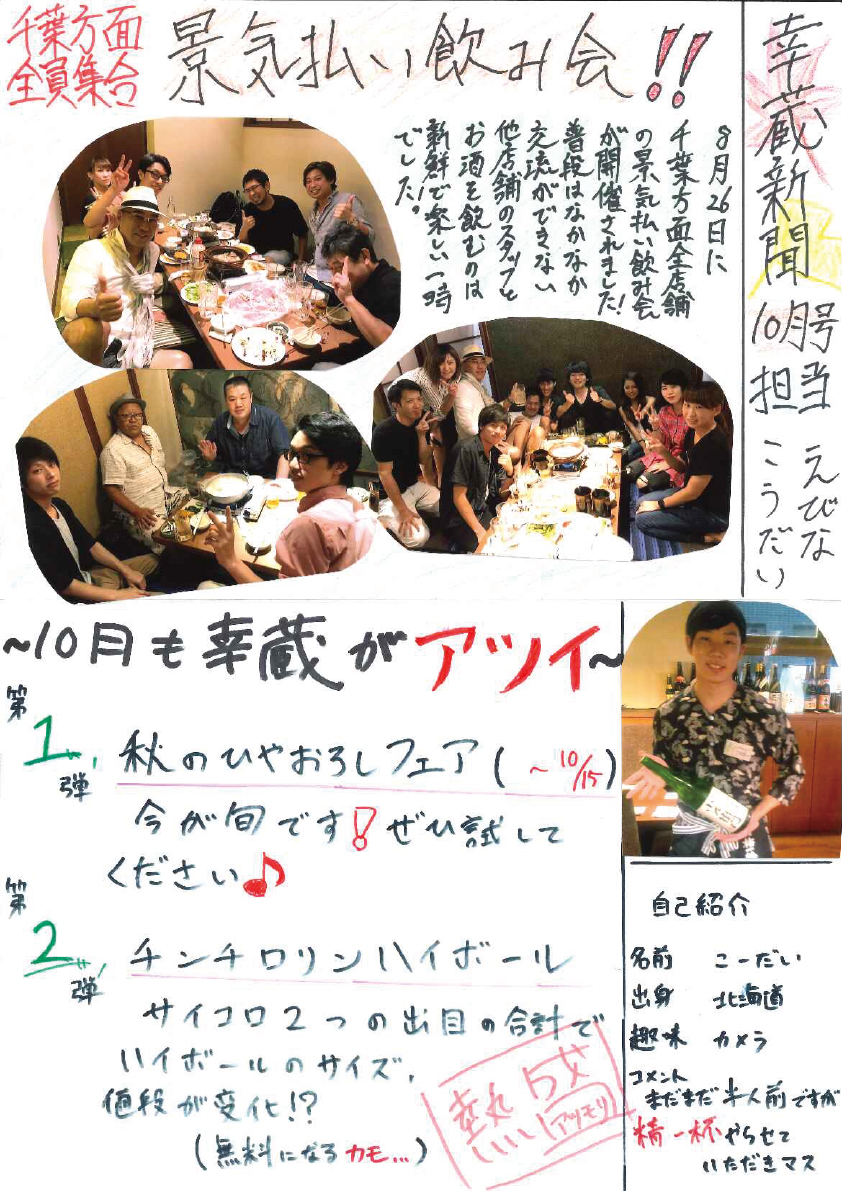 幸蔵新聞
10月号
担当
えびな
こうだい
千葉方面
全員集合
景気払い飲み会!!
8月26日に
千葉方面全店舗
の景気払い飲み会
が開催されました!
普段はなかなか
交流ができない
他店舗のスタッフと
お酒を飲むのは
新鮮で楽しい一時
でした!。
~10月も幸蔵がアツイ~
第1弾!
秋のひやおろしフェア(~10/15)
今が旬です!ぜひ試して
ください♪
第2弾!
チンチロリンハイボール
サイコロ2つの出目の合計で
ハイボールのサイズ、
値段が変化!?
(無料になるカモ…)
アツモリ
自己紹介
名前 こーだい
出身 北海道
趣味 カメラ
コメント
まだまだ半人前ですが
精一杯やらせて
いただきマス